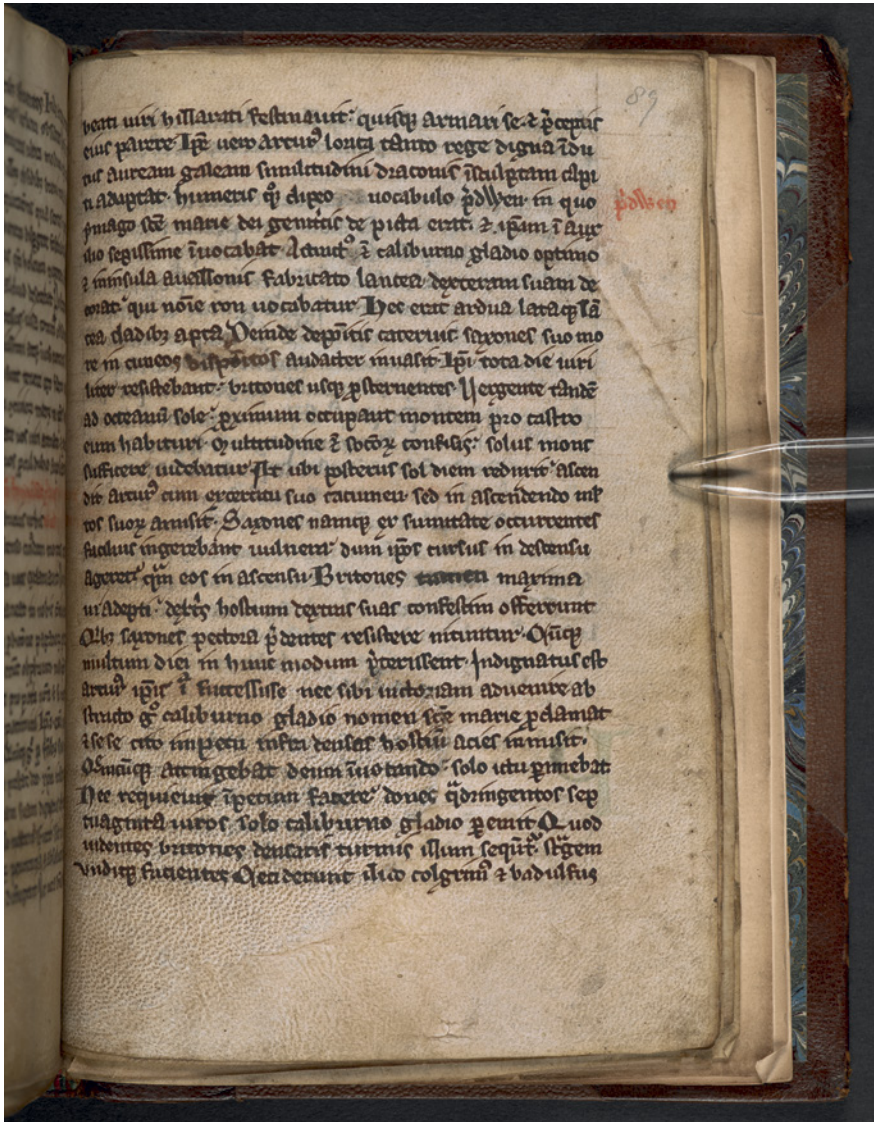 89
beati uiri hillarati festinauit quisqꝫ armari se ⁊ p̄ceptis
eius parere Ip̄e uero arturꝰ lorica tanto rege digna īdu
tus auream galeam simulitudini draconis īsculptam capi
ti adaptat humeris qͦꝫ clipeo uocabulo p̄dwen in quo
ymago sc̄e marie dei genit̄cis de picta erat ⁊ ip̄am ī aux
ilio sepissime īuocabat Accinctꝰ ē caliburno gladio optimo
⁊ ininsula auallonis fabricato lancea dexteram suam de
corat qui noīe ron uocabatur Hec erat ardua lataqꝫ lā
cea cladibꝫ apta Deinde depōitis cateruis saxones suo mo
re in cuneos dispoītos audacter inuasit Ip̄i tota die uiri
liter resistebant britones usqꝫ ꝓsternentes Uergente tandē
ad occeanū sole ꝓximum occupant montem pro castro
eum habituri Multitudine ē socioꝝ confisis solus mons
sufficere uidebatur At ubi posterus sol diem reduxit ascen
dit arturꝰ cum exercitu suo cacumen sed in ascendendo ml̄
tos suoꝝ amisit Saxones namqꝫ ex sumitate occurrentes
facilius ingerebant uulnera dum ip̄os cursus in descensu
ageret qͣm eos in ascensu Britones tamen maxima
ui adepti dext̄s hostium dextras suas confestim offerunt
Quibꝫ saxones pectora p̄dentes resistere nituntur Cūqꝫ
multum diei in hunc modum p̄terissent Indignatus est
arturꝰ ip̄is ī successisse nec sibi uictoriam aduenire ab
stracto gͦ caliburno gladio nomen sc̄e marie ꝓclamat
⁊ sese cito impetu infra densas hostiū acies inmisit
Quēcūqꝫ attingebat deum īuocando solo ictu ꝑimebat
Nec requieuit īpetum facere donec qͣdringentos sep
tuaginta uiros solo caliburno gladio ꝑemit Quod
uidentes britones densatis turmis illum sequūt̄ strͣgem
undiqꝫ facientes Ceciderunt ilico colgrinꝰ ⁊ badulfus
p̄dwen